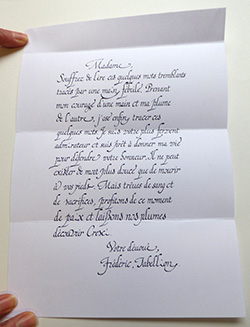 Madame,
Souffrez de lire ces quelques mots tremblants
tracés par une main fébrile. Prenant
mon courage d'une main et ma plume
de l'autre, j'ose enfin tracer ces
quelques mots. Je suis votre plus fervent
admirateur et suis prêt à donner ma vie
pour défendre votre honneur. Il ne peut
exister de mort plus douce que de mourir
à vos pieds. Mais trêves de sang et
de sacrifices, profitons de ce moment
de paix et laissons nos plumes
découvrir
Votre dévoué,
Frédéric Tabellion